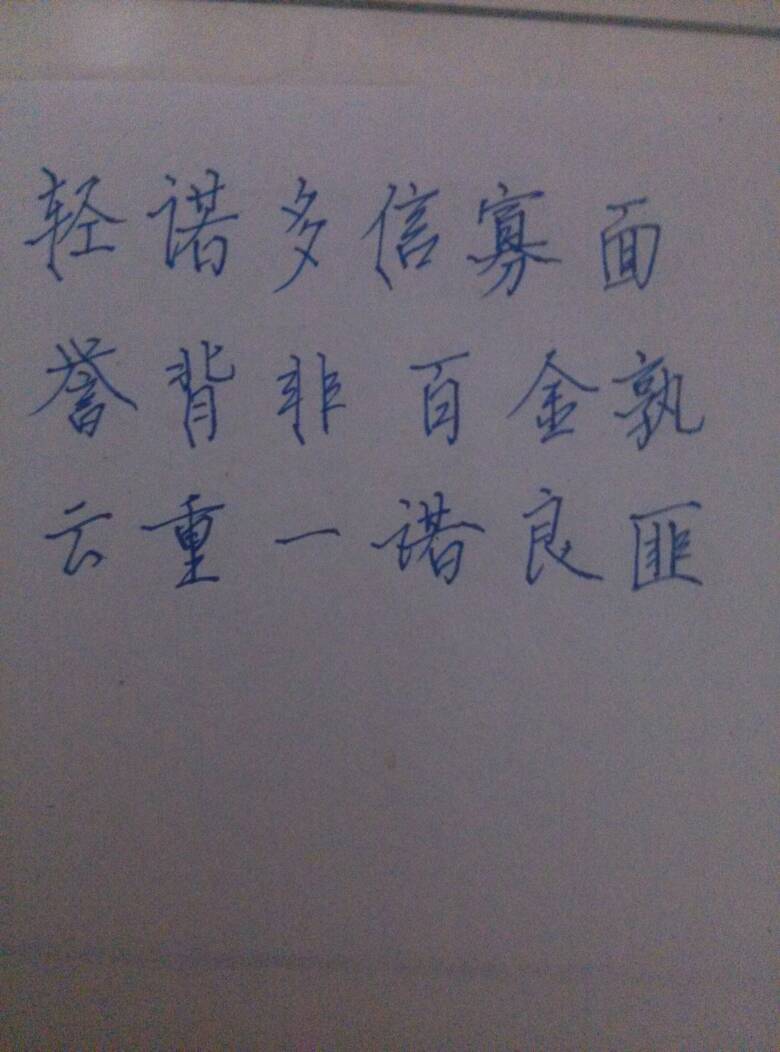 轻诺多信寡面
誉背非百金孰
云重一诺良匪